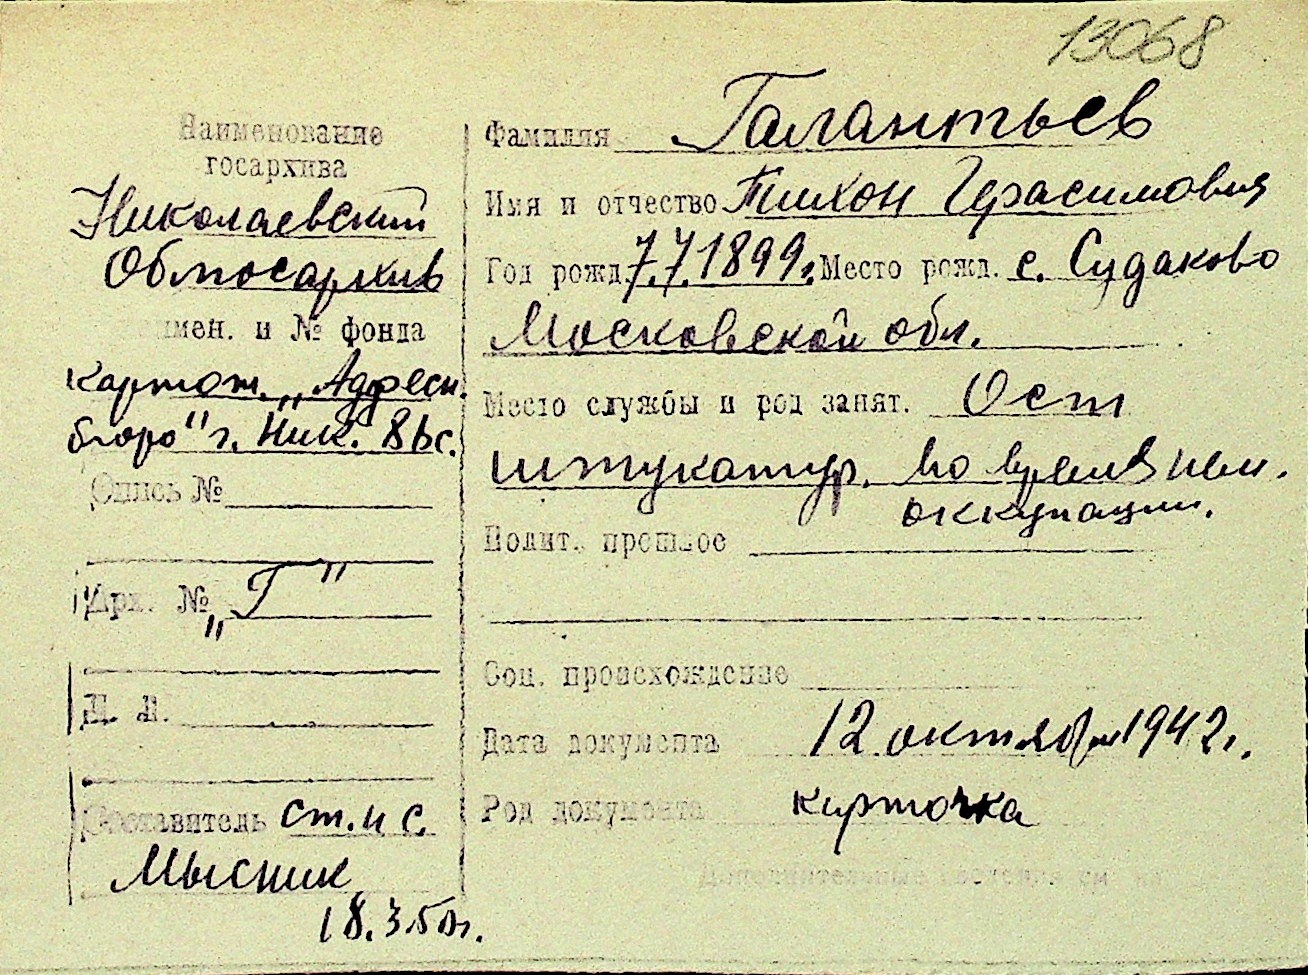 13068
Наименование
госархива
Николаевский
Облгосархив
имен. и № фонда
картот. „Адресн.
бюро" г. Ник.
Опись №
Арх. № „Г"
Л. Л.
Составитель ст. н с.
Мысник
18.3.50г.
Фамилия Галантьев
Имя и отчество Тихон Герасимович
Год рожд. 7.7.1899г. Место рожд. с. Судаково
Московской обл.
Место службы и род занят. Ост
штукатур. во время нем.
оккупации.
Полит. прошлое
Соц. происхождение
Дата документа 12 октября 1942г.
Род документа карточка
Дополнительные сведения см. на